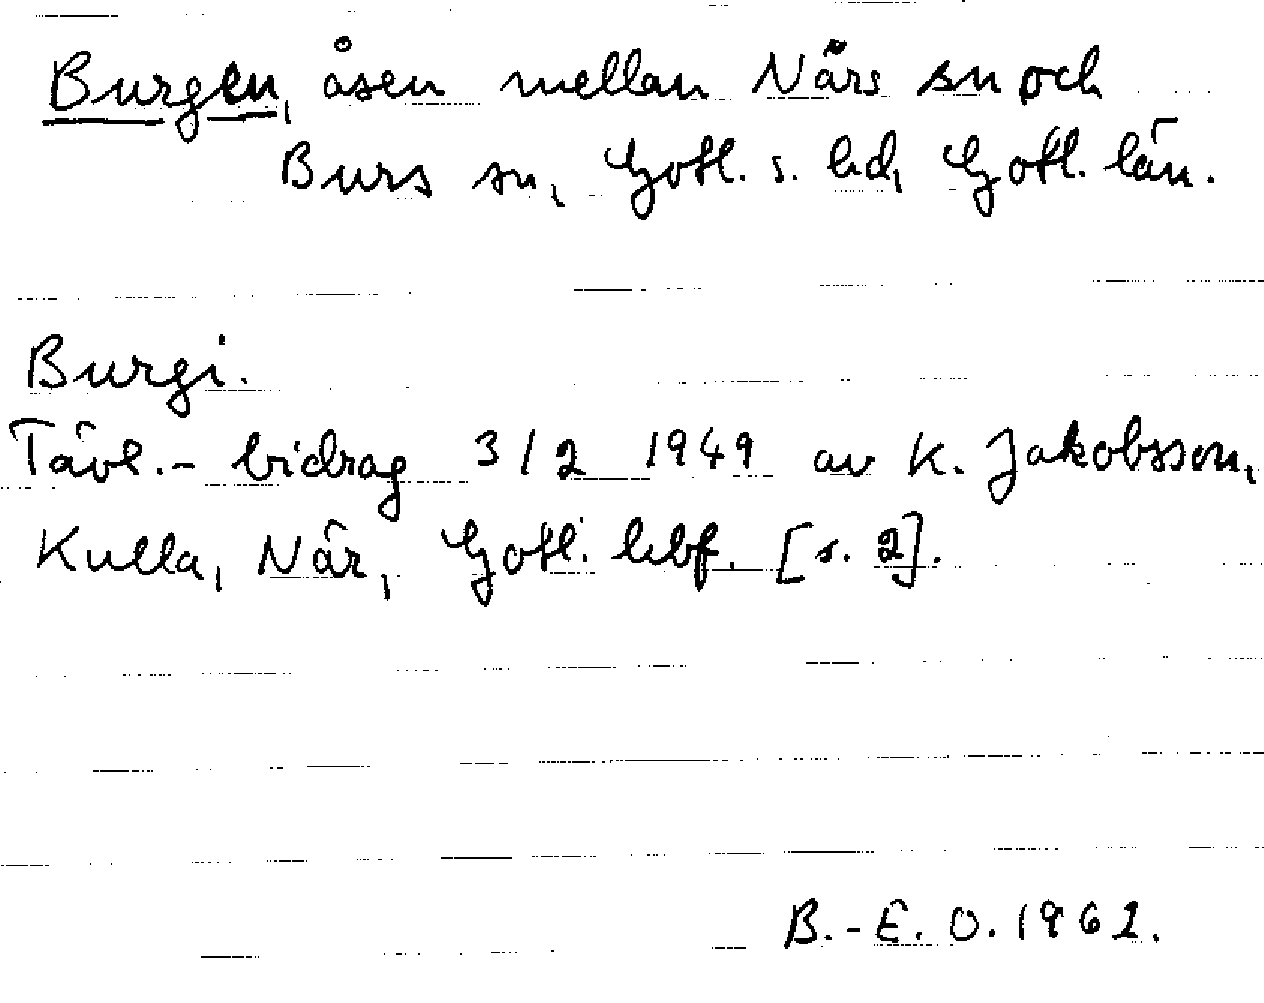 Burgen, åsen mellan Närs sn och
Burs sn, Gotl. s. hd, Gotl. län.
Burgi.
Tävl.- bidrag 3/2 1949 av K. Jakobsson,
Kulla, När, Gotl. hbf. [s. 2].
B.-E. O. 1962.